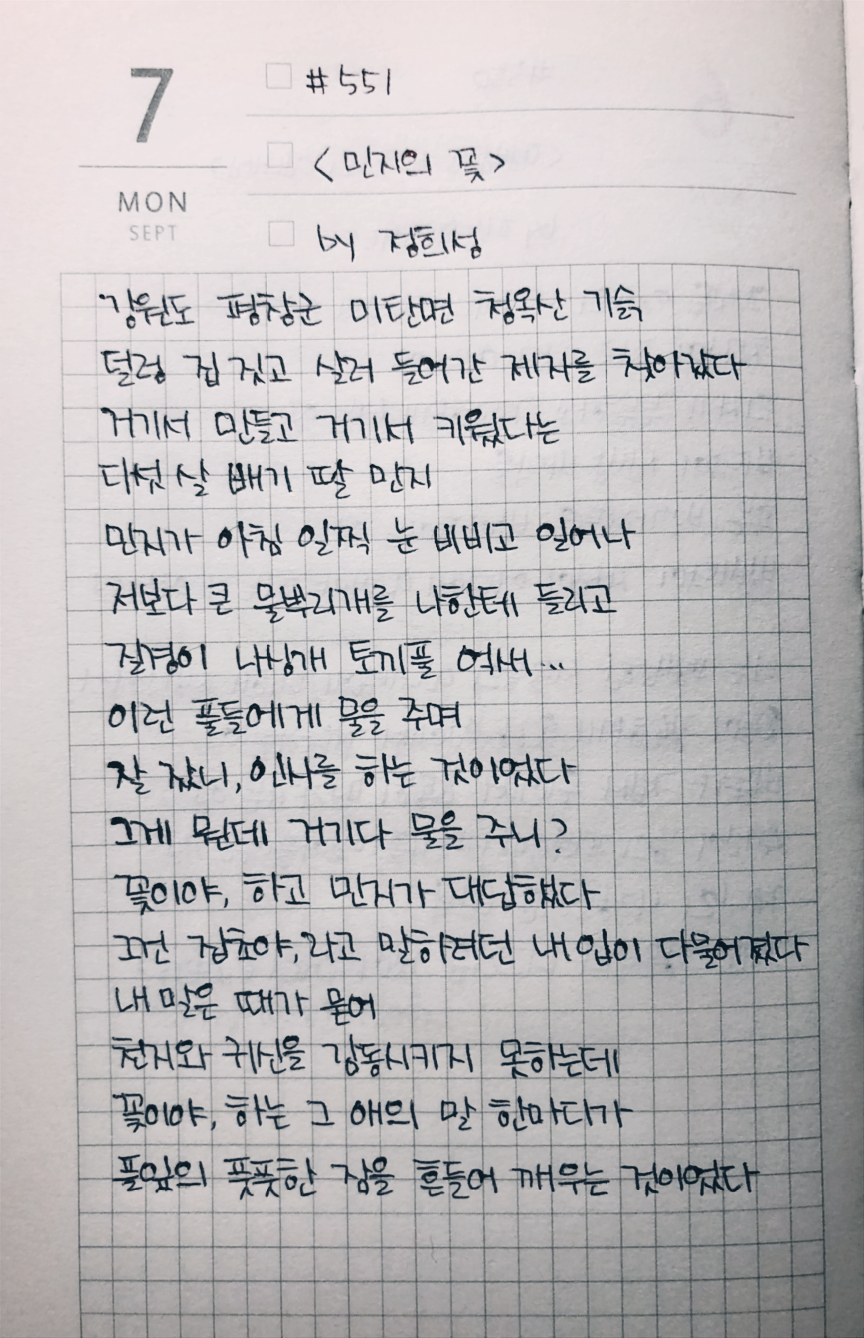 7
MON
SEPT
#551
<민지의 꽃>
by 정희성
강원도 평창군 미탄면 청옥산 기슭
덜렁 집 짓고 살러 들어간 제자를 찾아갔다
거기서 만들고 거기서 키웠다는
다섯 살 배기 딸 민지
민지가 아침 일찍 눈 비비고 일어나
저보다 큰 물뿌리개를 나한테 들리고
질경이 나싱개 토끼풀 억새...
이런 풀들에게 물을 주며
잘 잤니, 인사를 하는 것이었다
그게 뭔데 거기다 물을 주니?
꽃이야, 하고 민지가 대답했다
그건 잡초야, 라고 말하려던 내 입이 다물어졌다
내 말은 때가 묻어
천지와 귀신을 감동시키지 못하는데
꽃이야, 하는 그 애의 말 한마디가
풀잎의 풋풋한 잠을 흔들어 깨우는 것이었다